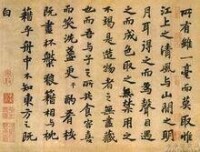 所有雖一毫而莫取惟
江上之清風與山間之明
月耳得之而為聲目遇
之而成色取之無禁用之
不竭是造物者之無盡藏
也而吾與子之所共食客喜
而笑洗盞更酌肴核
既盡杯盤狼籍相與枕
藉乎舟中不知東方之既
白